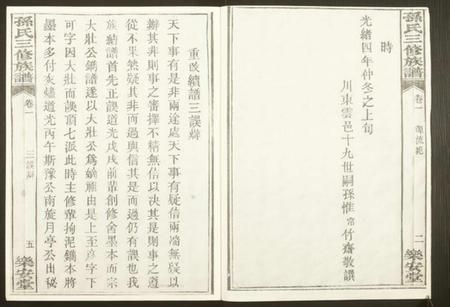 孫氏三修族譜
卷一
源流總
二
樂安堂
時
光緒四年仲冬之上旬
川東雲邑十九世嗣孫惟帝竹齋敬譔
重改續譜三誤辨
天下事有是非兩途處天下事有疑信兩端無疑以
辦其非則事之審擇不精無信以決其是則事之遵
從不果然疑其非而過與信其是而過仍有誤也我
族續譜首先正誤道光戊戌前輩創修舍墨本而宗
大壯公鐫譜遂以大壯公為嫡旅由是上至彥字下
可字因大壯而誤頂七派此時主修輩拘泥鐫本將
墨本多付灰燼道光丙午斯豫公南旋月亭公出秘
孫氏三修族譜
卷一
三誤辨
五
樂安堂